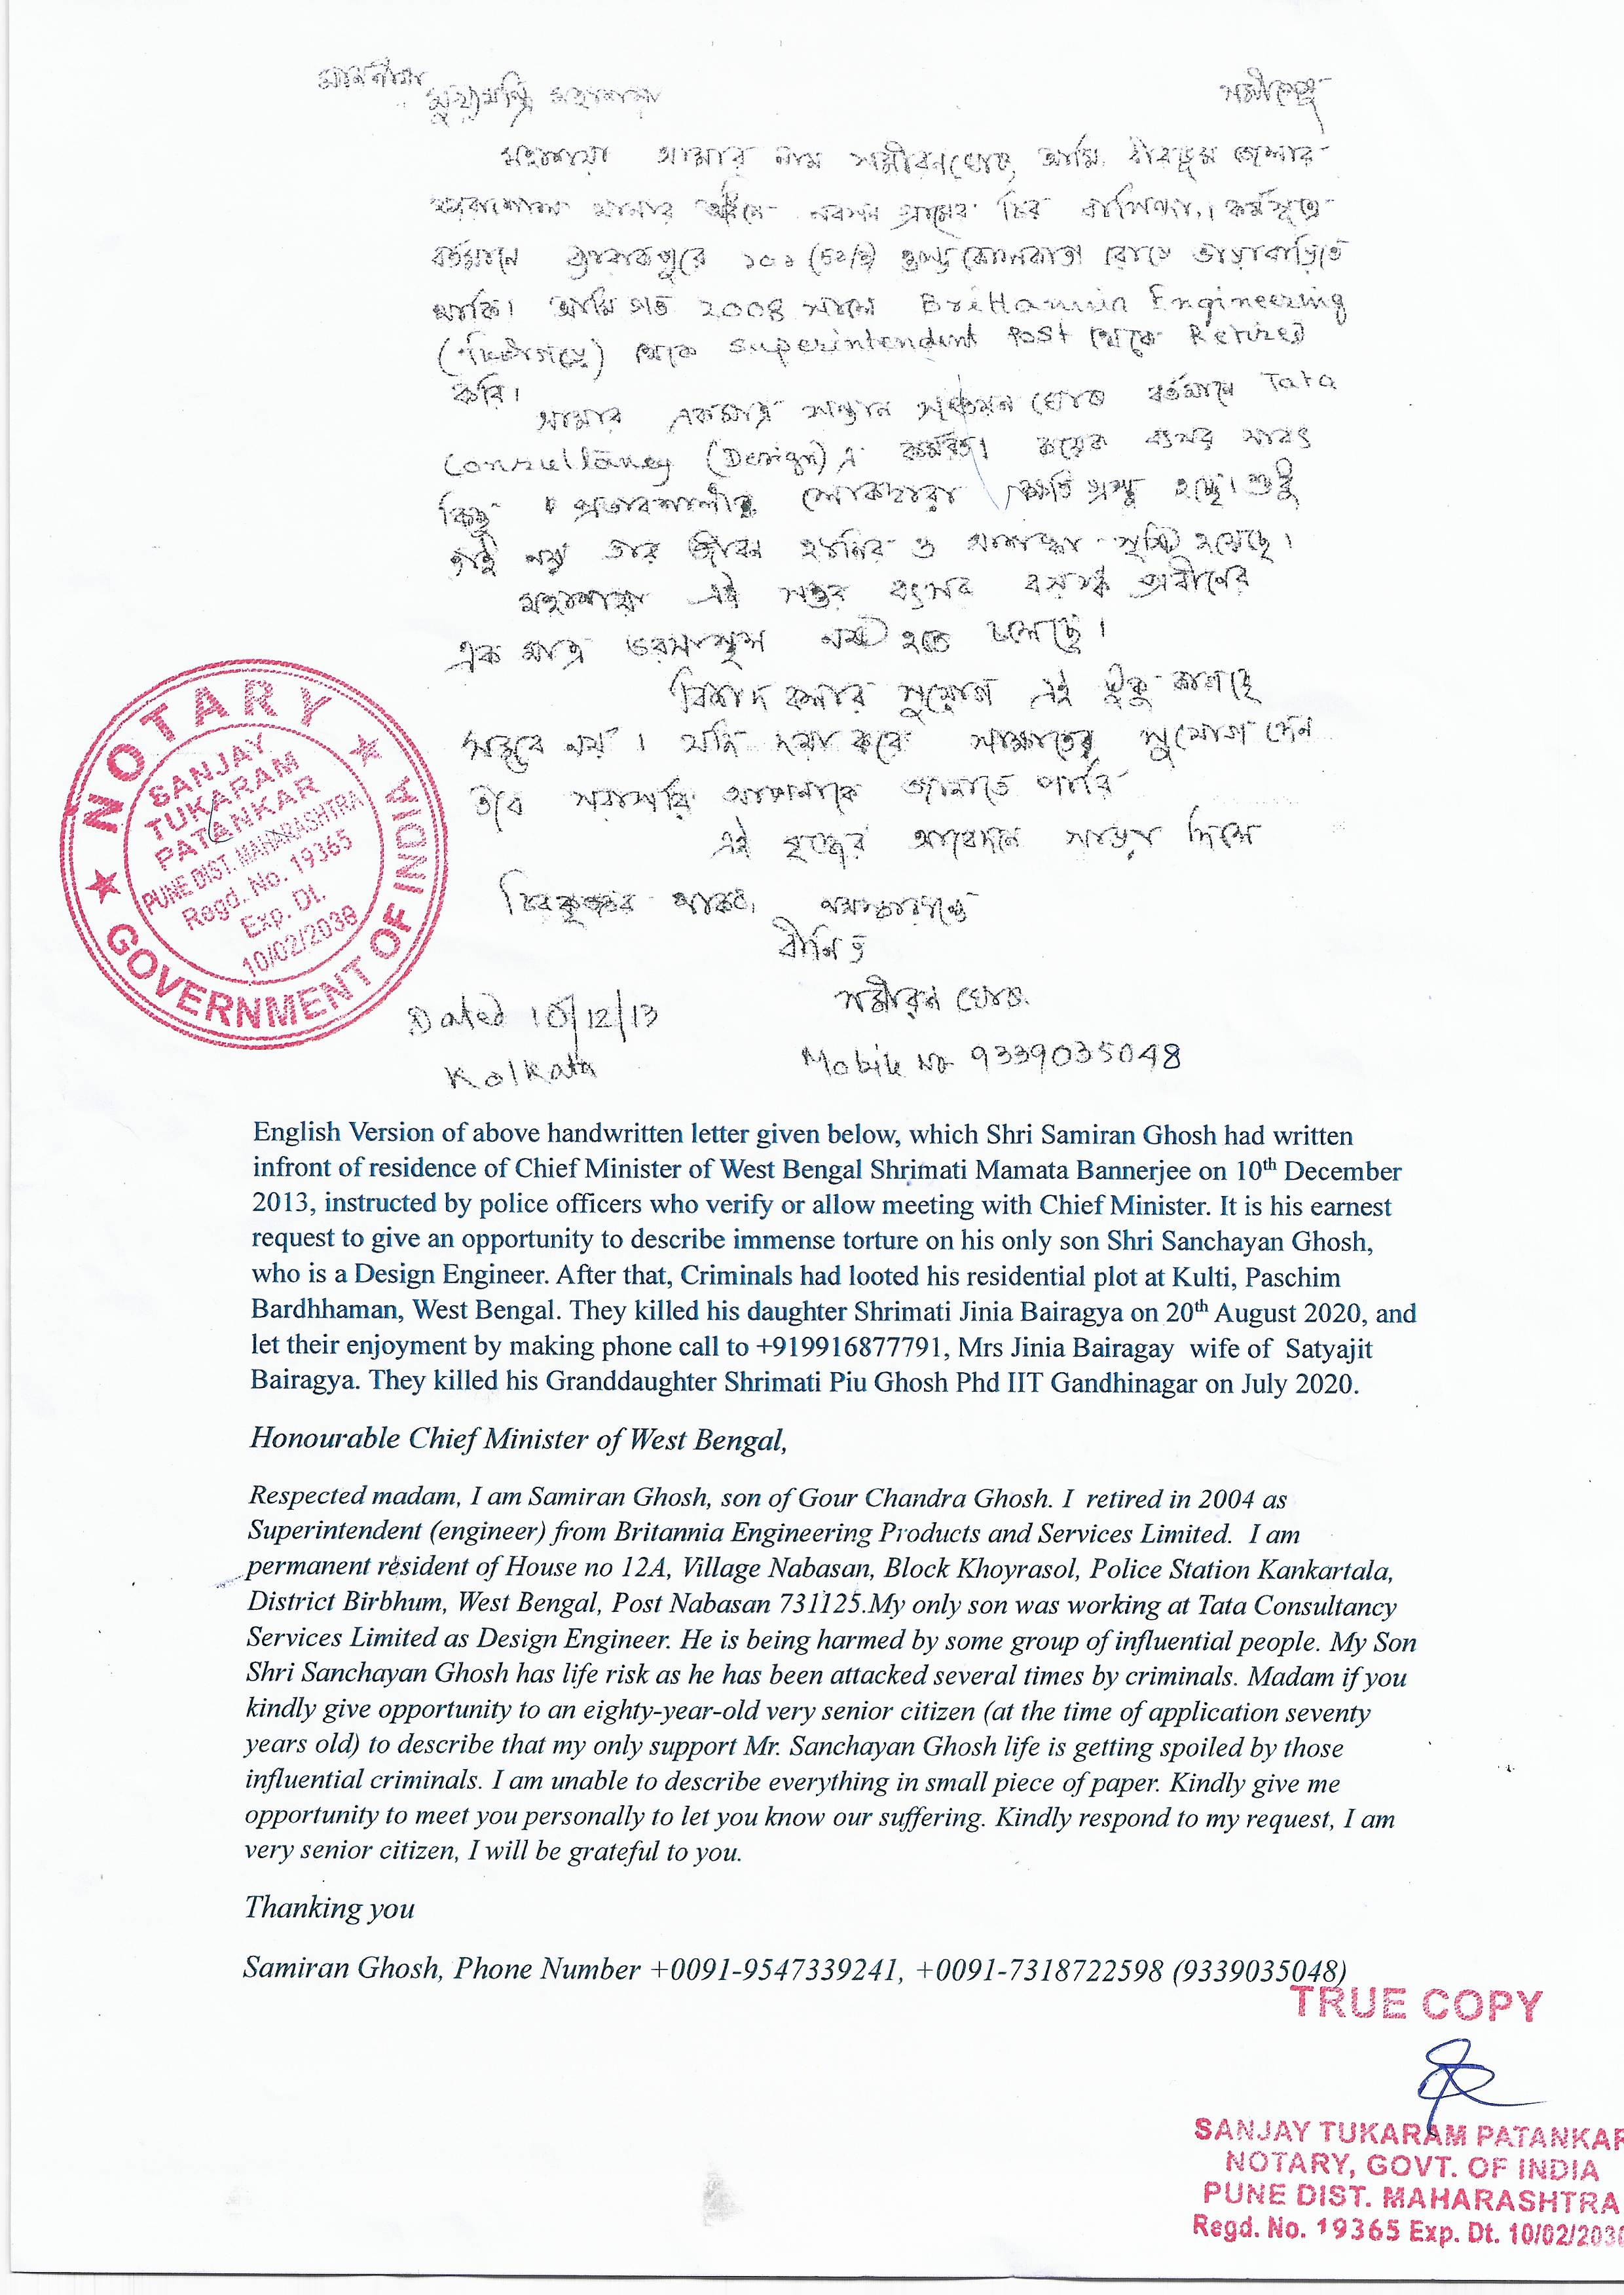 মাননীয়া
মুখ্যমন্ত্রী মহাশয়া সমীপেষু
মহাশয়া আমার নাম সমীরন ঘোষ, আমি বীরভূম জেলার
থানার নবসন গ্রামের চির বাসিন্দা। কর্মসূত্রে
বর্তমানে রোডে ভাড়াবাড়িতে
থাকি। আমি গত 2008 সালে Brittannia Engineering
থেকে Superintendent Post থেকে Retired
করি।
আমার একমাত্র সন্তান ঘোষ বর্তমানে Tata
Consultancy (Design) এ কর্মরত। কয়েক বৎসর যাবৎ
কিছু প্রভাবশালীর লোকদ্বারা ক্ষতিগ্রস্থ হচ্ছে। শুধু
তাই নয় তার জীবন হানির ও আশঙ্কা সৃষ্টি হয়েছে।
মহাশয়া এই সত্তর বৎসর বয়স্ক প্রবীনের
এক মাত্র ভরসাস্থল নষ্ট হতে চলেছে।
বলার সুযোগ এই কাগজে
সম্ভব নয়। যদি দয়া করে সাক্ষাতের সুযোগ দেন
তবে সরাসরি আপনাকে জানাতে পারি
এই বৃদ্ধের আবেদনে সাড়া দিলে
চিরকৃতজ্ঞ থাকব। নমস্কারান্তে
বীনিত
সমীরন ঘোষ
Dated 10/12/13
Kolkata
Mobile No 9339035048
NOTARY
GOVERNMENT OF INDIA
SANJAY
TUKARAM
PATANKAR
PUNE DIST. MAHARASHTRA
Regd. No. 19365
Exp. Dt.
10/02/2030
English Version of above handwritten letter given below, which Shri Samiran Ghosh had written
infront of residence of Chief Minister of West Bengal Shrimati Mamata Bannerjee on 10th December
2013, instructed by police officers who verify or allow meeting with Chief Minister. It is his earnest
request to give an opportunity to describe immense torture on his only son Shri Sanchayan Ghosh,
who is a Design Engineer. After that, Criminals had looted his residential plot at Kulti, Paschim
Bardhhaman, West Bengal. They killed his daughter Shrimati Jinia Bairagya on 20th August 2020, and
let their enjoyment by making phone call to +919916877791, Mrs Jinia Bairagay wife of Satyajit
Bairagya. They killed his Granddaughter Shrimati Piu Ghosh Phd IIT Gandhinagar on July 2020.
Honourable Chief Minister of West Bengal,
Respected madam, I am Samiran Ghosh, son of Gour Chandra Ghosh. I retired in 2004 as
Superintendent (engineer) from Britannia Engineering Products and Services Limited. I am
permanent resident of House no 12A, Village Nabasan, Block Khoyrasol, Police Station Kankartala,
District Birbhum, West Bengal, Post Nabasan 731125.My only son was working at Tata Consultancy
Services Limited as Design Engineer. He is being harmed by some group of influential people. My Son
Shri Sanchayan Ghosh has life risk as he has been attacked several times by criminals. Madam if you
kindly give opportunity to an eighty-year-old very senior citizen (at the time of application seventy
years old) to describe that my only support Mr. Sanchayan Ghosh life is getting spoiled by those
influential criminals. I am unable to describe everything in small piece of paper. Kindly give me
opportunity to meet you personally to let you know our suffering. Kindly respond to my request, I am
very senior citizen, I will be grateful to you.
Thanking you
Samiran Ghosh, Phone Number +0091-9547339241, +0091-7318722598 (9339035048)
TRUE COPY
SANJAY TUKARAM PATANKAR
NOTARY, GOVT. OF INDIA
PUNE DIST. MAHARASHTRA
Regd. No. 19365 Exp. Dt. 10/02/2030